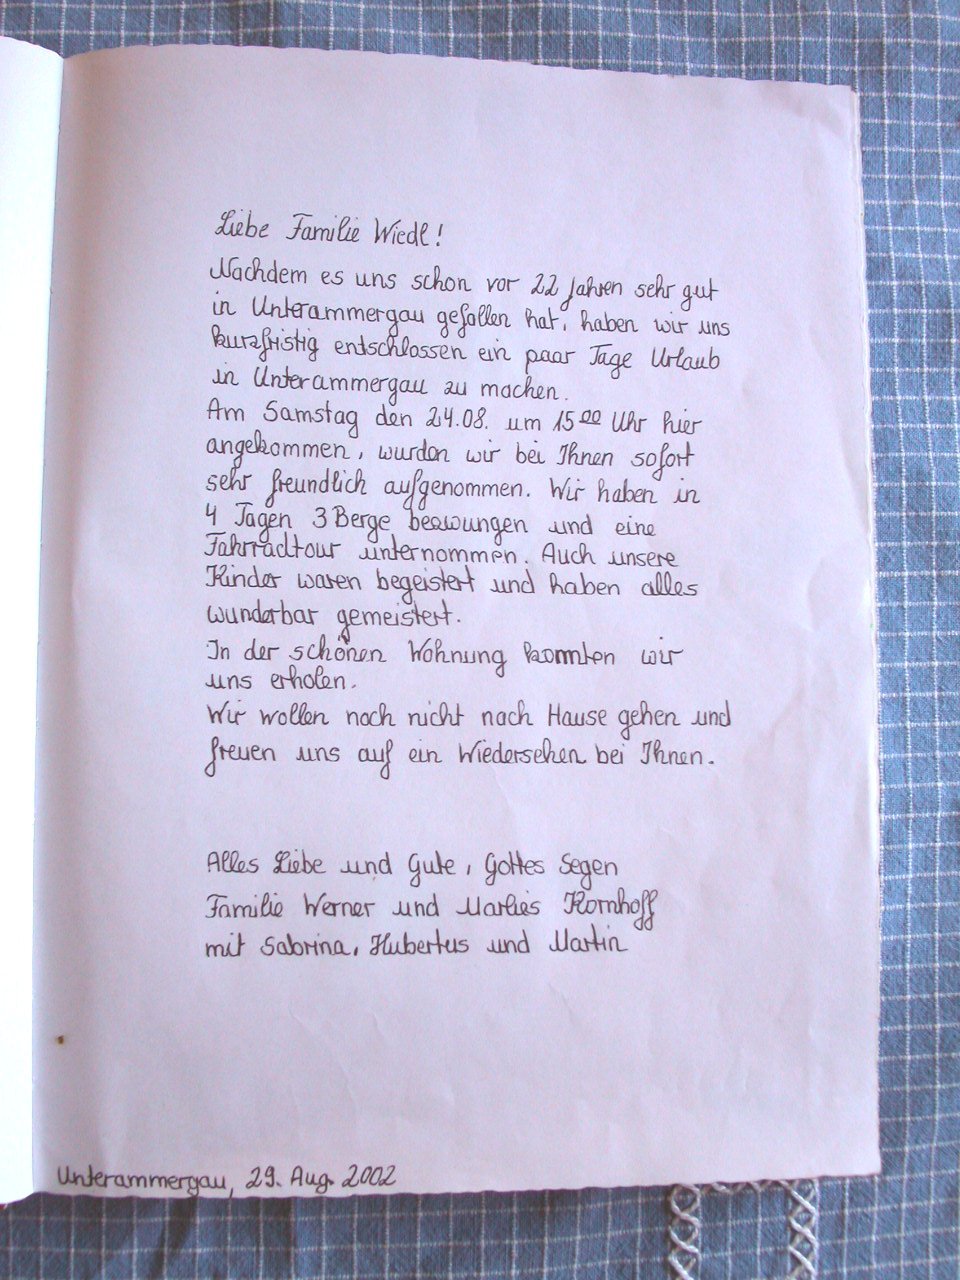 Liebe Familie Wiedl!
Nachdem es uns schon vor 22 Jahren sehr gut
in Unterammergau gefallen hat, haben wir uns
kurzfristig entschlossen ein paar Tage Urlaub
in Unterammergau zu machen.
Am Samstag den 24.08. um 15⁰⁰ Uhr hier
angekommen, wurden wir bei Ihnen sofort
sehr freundlich aufgenommen. Wir haben in
4 Tagen 3 Berge bezwungen und eine
Fahrradtour unternommen. Auch unsere
Kinder waren begeistert und haben alles
wunderbar gemeistert.
In der schönen Wohnung konnten wir
uns erholen.
Wir wollen noch nicht nach Hause gehen und
freuen uns auf ein Wiedersehen bei Ihnen.
Alles Liebe und Gute, Gottes Segen
Familie Werner und Marlies Kornhoff
mit Sabrina, Hubertus und Martin
Unterammergau, 29. Aug. 2002